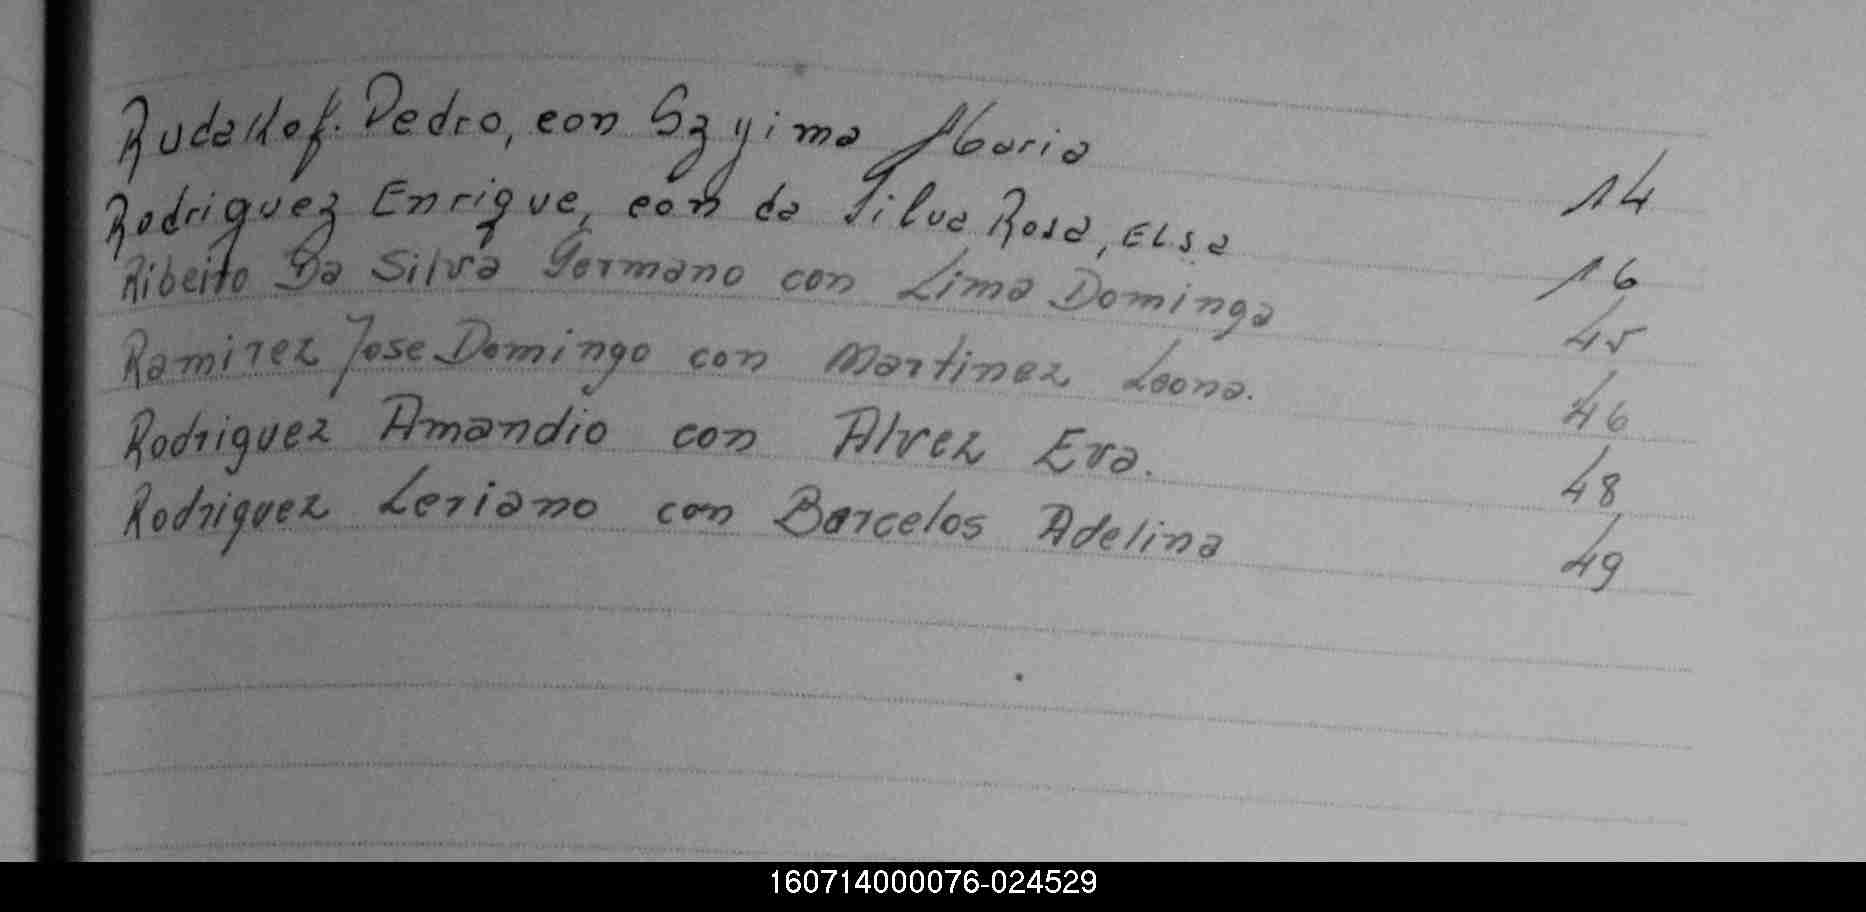 Rudallof. Pedro, con Szyima Maria 14
Rodriguez Enrique, con da Silva Rosa, ELSa 16
Ribeiro Da Silva Germano con Lima Dominga 45
Ramirez Jose Domingo con Martinez Leona. 46
Rodriguez Amandio con Alvez Eva. 48
Rodriguez Leriano con Barcelos Adelina 49
160714000076-024529